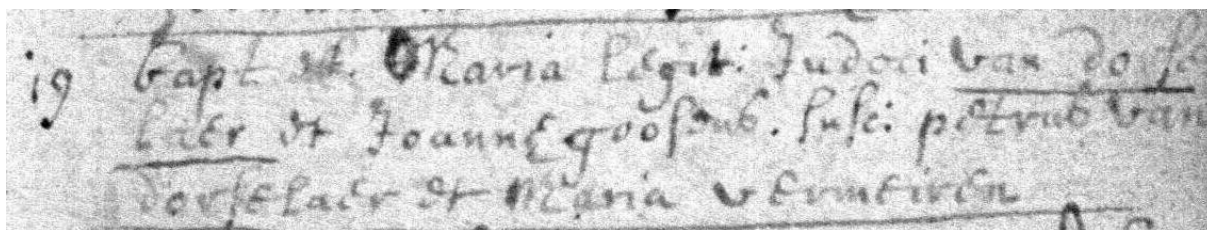 19 bapt est Maria legit: Judoci van dorse
laer et Joanne goosens. susc: petrus van
dorselaer et Maria vermeiren